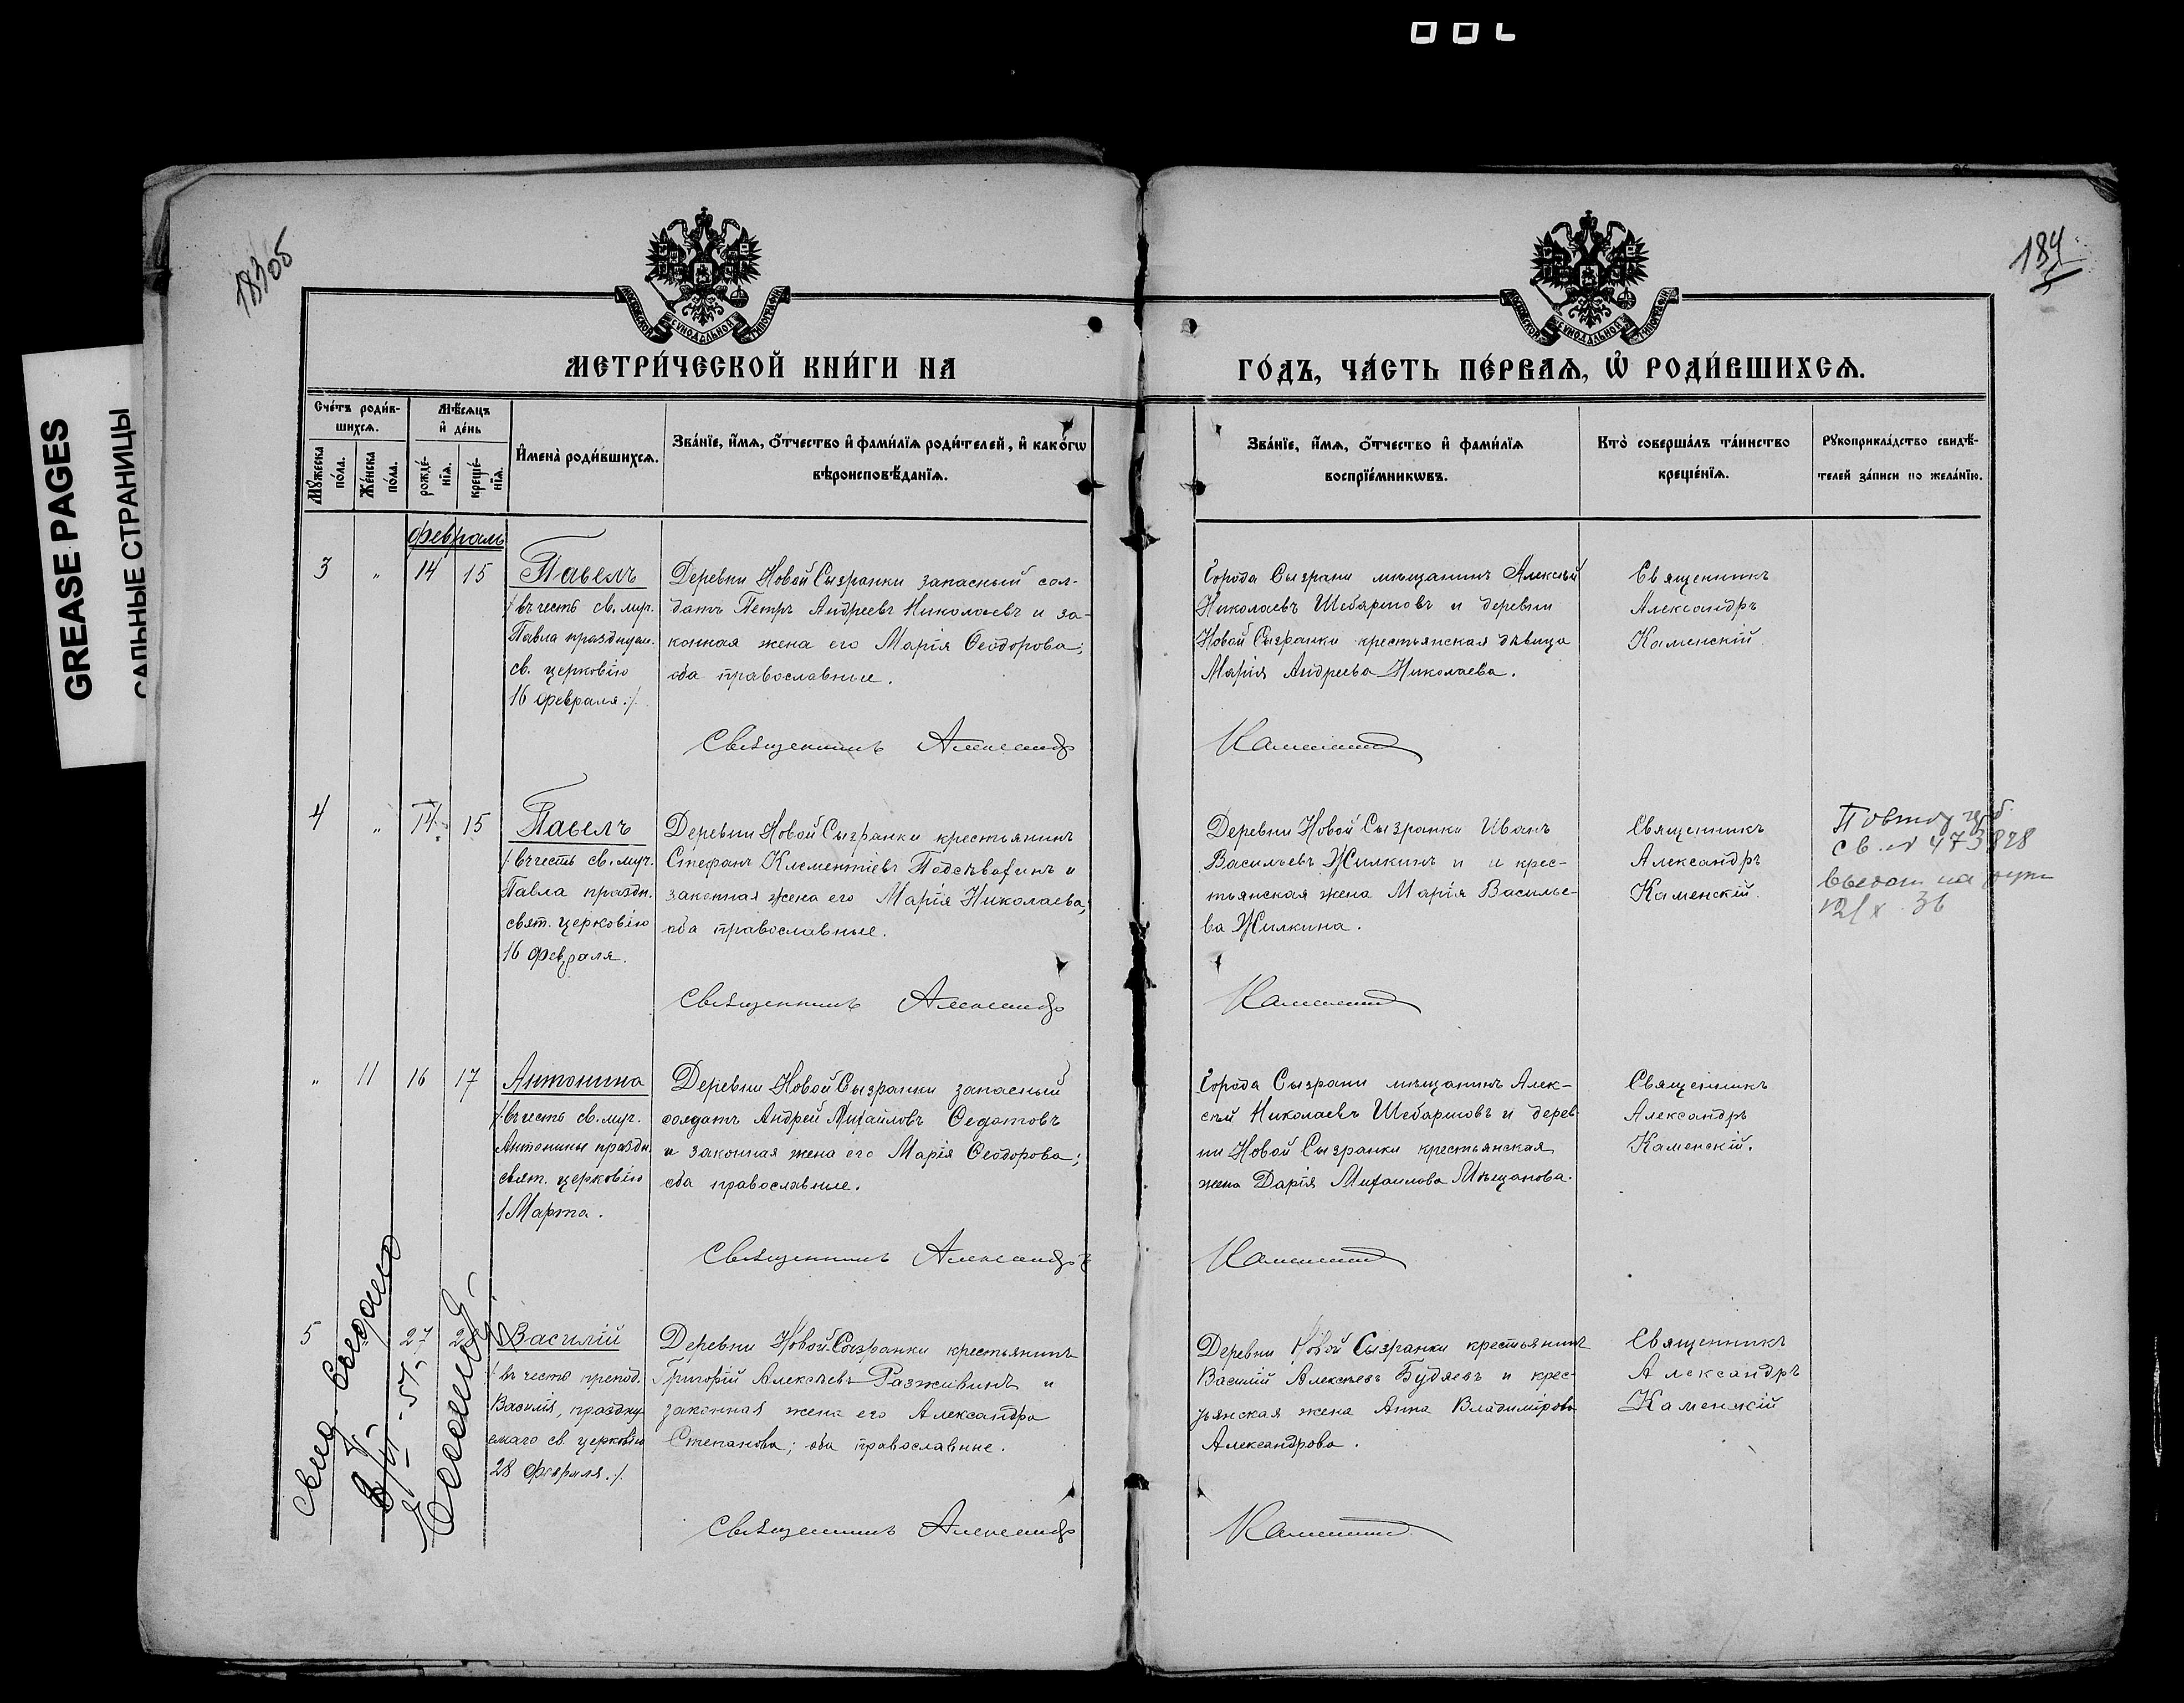 GREASE PAGES
САЛЬНЫЕ СТРАНИЦЫ
18305
184
МОСКОВСКОЙ СѴНОДАЛЬНОЙ ТИПОГРАФІИ
МОСКОВСКОЙ СѴНОДАЛЬНОЙ ТИПОГРАФІИ
МЕТРИ́ЧЕСКОЙ КНИ́ГИ НА
ГО́ДЪ, ЧА́СТЬ ПЕ́РВАѦ, Ѡ҆ РОДИ́ВШИХСѦ.
Сче́тъ роди́в-
шихсѧ.
Мꙋ́жеска по́ла.
Же́нска по́ла.
Мѣ́сѧцъ
и҆ де́нь
рожде́нїѧ.
креще́нїѧ.
И҆мена̀ роди́вшихсѧ.
Зва́нїе, и҆́мѧ, ѻ҆́тчество и҆ фами́лїѧ роди́телей, и҆ како́гѡ
вѣроисповѣ́данїѧ.
Зва́нїе, и҆́мѧ, ѻ҆́тчество и҆ фами́лїѧ
воспрїе́мникѡвъ.
Кто̀ соверша́лъ та́инство
креще́нїѧ.
Рꙋкоприкла́дство свидѣ́-
телей за́писи по жела́нїю.
Февраль
3 " 14 15
Павелъ
/:въ честь св. муч.
Павла празднуем.
св. церковію
16 февраля:/.
Деревни Новой Сызранки запасный сол-
датъ Петръ Андреевъ Николаевъ и за-
конная жена его Марія Ѳеодорова;
оба православные.
Города Сызрани мѣщанинъ Алексѣй
Николаевъ Шебаршовъ и деревни
Новой Сызранки крестьянская дѣвица
Марія Андреева Николаева.
Священникъ
Александръ
Каменскій
Священникъ Александръ
Каменскій
4 " 14 15
Павелъ
/:въ честь св. муч.
Павла праздн.
свят. церковію
16 февраля.
Деревни Новой Сызранки крестьянинъ
Стефанъ Климентіевъ Подсѣвафинъ и
законная жена его Марія Николаева;
оба православные.
Деревни Новой Сызранки Иванъ
Васильевъ Жилкинъ и и крес-
тьянская жена Марія Василье-
ва Жилкина.
Священникъ
Александръ
Каменскій.
св. № 473828
36
Священникъ Александръ
Каменскій
" 11 16 17
Антонина
/:въ честь св. муч.
Антонины праздн.
свят. церковію
1 Марта.
Деревни Новой Сызранки запасный
солдатъ Андрей Михайловъ Ѳедотовъ
и законная жена его Марія Ѳеодорова;
оба православные.
Города Сызрани мѣщанинъ Алек-
сѣй Николаевъ Шебаршовъ и дерев-
ни Новой Сызранки крестьянская
жена Дарія Михаилова Мѣщанова.
Священникъ
Александръ
Каменскій.
Священникъ Александръ
Каменскій
5 27 28
Василій
/:въ честь препод.
Василія, праздну-
емаго св. церковію
28 февраля:/.
Деревни Новой Сызранки крестьянинъ
Григорій Алексѣевъ Разживинъ и
законная жена его Александра
Степанова; оба православные.
Деревни Новой Сызранки крестьянинъ
Василій Алексѣевъ Будяевъ и крес-
тьянская жена Анна Владимірова
Александрова.
Священникъ
Александръ
Каменскій
Священникъ Александръ
Каменскій